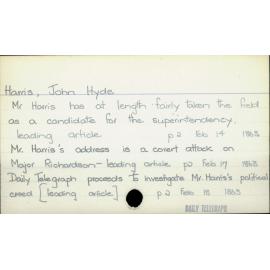 Harris, John Hyde
Mr Harris has at length fairly taken the field
as a candidate for the superintendency.
leading article p2 Feb 14 1863
Mr. Harris's address is a covert attack on
Major Richardson - leading article p2 Feb 17 1863
Daily Telegraph proceeds to investigate Mr. Harris's political
creed [leading article] p2 Feb 18 1863
DAILY TELEGRAPH